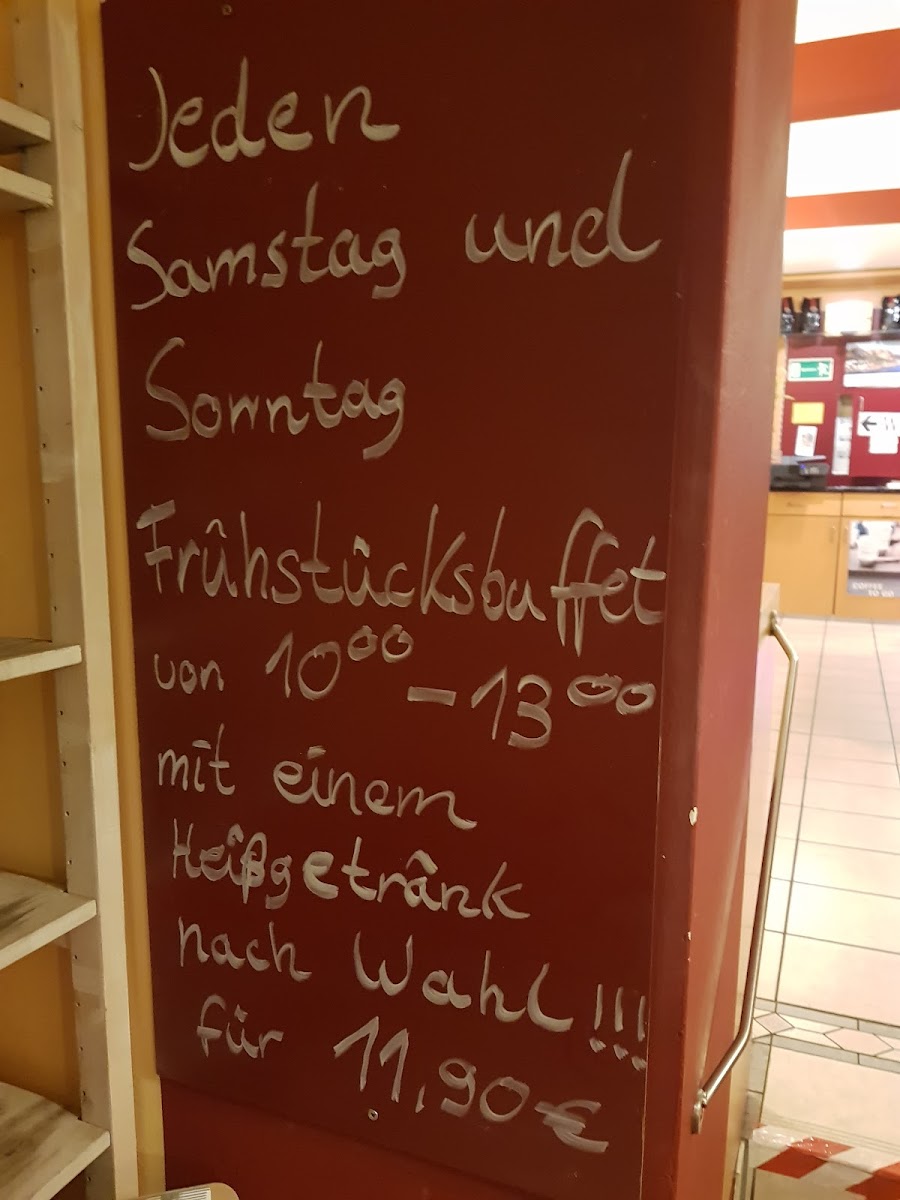 Jeden
Samstag und
Sonntag
Frühstücksbuffet
von 10⁰⁰ - 13⁰⁰
mit einem
Heißgetränk
nach Wahl!!!
für 11,90€
COFFEE
TO GO